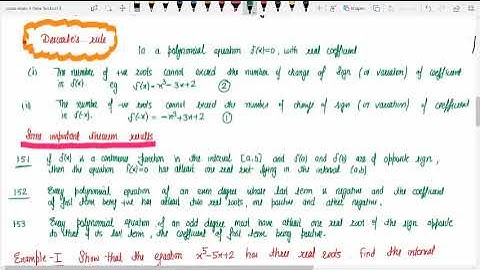 Descarte's rule
In a polynomial equation f(x)=0, with real coefficient
(i) The number of +ve roots cannot exceed the number of change of sign (or variation) of coefficient
in f(x). eg f(x)=x³-3x+2 ②
(ii) The number of -ve roots cannot exceed the number of change of sign (or variation) of coefficient
in f(-x). f(-x) = -x³+3x+2 ①
Some important theorem results
151 If f(x) is a continuous function in the interval [a,b] and f(a) and f(b) are of opposite sign,
then the equation f(x)=0 has atleast one real root lying in the interval (a,b)
152 Every polynomial equation of an even degree whose last term is negative and the coefficient
of first term being +ve has atleast two real roots, one positive and other negative.
153 Every polynomial equation of an odd degree must have atleast one real root of the sign opposite
to that of its last term, the coefficient of first term being positive.
Example-I Show that the equation x⁵-5x+2 has three real roots Find the interval